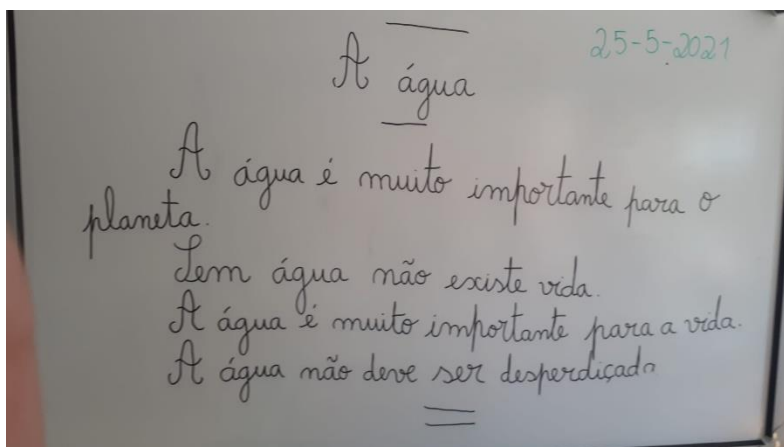 25-5-2021
A água
A água é muito importante para o
planeta.
Sem água não existe vida.
A água é muito importante para a vida.
A água não deve ser desperdiçada